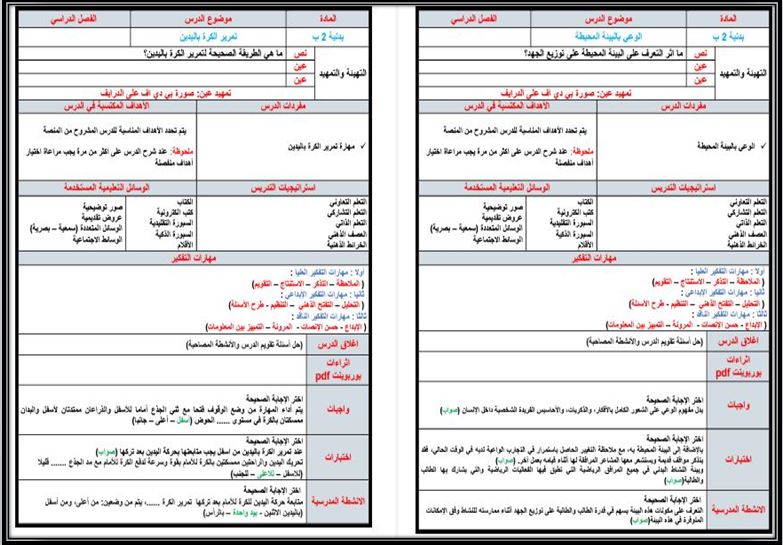 المادة موضوع الدرس الفصل الدراسي
بدنية 2 ب الوعي بالبيئة المحيطة
التهيئة والتمهيد
نص ما اثر التعرف على البيئة المحيطة على توزيع الجهد؟
عين
عين
تمهيد عين: صورة بي دي اف على الدرايف
مفردات الدرس الأهداف المكتسبة في الدرس
✓ الوعي بالبيئة المحيطة
يتم تحدد الأهداف المناسبة للدرس المشروح من المنصة
ملحوظة: عند شرح الدرس على اكثر من مرة يجب مراعاة اختيار
أهداف منفصلة
استراتيجيات التدريس الوسائل التعليمية المستخدمة
التعلم التعاوني
التعلم التشاركي
التعلم الذاتي
العصف الذهني
الخرائط الذهنية
الكتاب
كتب الكترونية
السبورة التقليدية
السبورة الذكية
الأقلام
صور توضيحية
عروض تقديمية
الوسائل المتعددة (سمعية – بصرية)
الوسائط الاجتماعية
مهارات التفكير
أولا : مهارات التفكير العليا :
( الملاحظة – التذكر – الاستنتاج – التقويم)
ثانيا : مهارات التفكير الإبداعي :
( التحليل – التفتح الذهني – التنظيم - طرح الأسئلة)
ثالثا : مهارات التفكير الناقد :
( الإبداع - حسن الإنصات - المرونة – التمييز بين المعلومات)
اغلاق الدرس (حل أسئلة تقويم الدرس والأنشطة المصاحبة)
اثراءات
بوربوينت pdf
واجبات
اختر الإجابة الصحيحة
يدل مفهوم الوعي على الشعور الكامل بالأفكار، والذكريات، والأحاسيس الفريدة الشخصية داخل الإنسان (صواب)
اختبارات
اختر الإجابة الصحيحة
بالإضافة إلى البيئة المحيطة به، مع ملاحظة التغيير الحاصل باستمرار في التجارب الواعية لديه في الوقت الحالي، فقد
يتذكر مواقف قديمة ويستشعر معها المشاعر المرافقة لها أثناء قيامه بعمل آخر. (صواب)
وبيئة النشاط البدني في جميع المرافق الرياضية التي تطبق فيها الفعاليات الرياضية والتي يشارك بها الطالب
والطالبة(صواب)
الانشطة المدرسية
اختر الإجابة الصحيحة
التعرف على مكونات هذه البيئة يسهم في قدرة الطالب والطالبة على توزيع الجهد أثناء ممارسته للنشاط وفق الإمكانات
المتوفرة في هذه البيئة(صواب)
المادة موضوع الدرس الفصل الدراسي
بدنية 2 ب تمرير الكرة باليدين
التهيئة والتمهيد
نص ما هي الطريقة الصحيحة لتمرير الكرة باليدين؟
عين
عين
تمهيد عين: صورة بي دي اف على الدرايف
مفردات الدرس الأهداف المكتسبة في الدرس
✓ مهارة تمرير الكرة باليدين
يتم تحدد الأهداف المناسبة للدرس المشروح من المنصة
ملحوظة: عند شرح الدرس على اكثر من مرة يجب مراعاة اختيار
أهداف منفصلة
استراتيجيات التدريس الوسائل التعليمية المستخدمة
التعلم التعاوني
التعلم التشاركي
التعلم الذاتي
العصف الذهني
الخرائط الذهنية
الكتاب
كتب الكترونية
السبورة التقليدية
السبورة الذكية
الأقلام
صور توضيحية
عروض تقديمية
الوسائل المتعددة (سمعية – بصرية)
الوسائط الاجتماعية
مهارات التفكير
أولا : مهارات التفكير العليا :
( الملاحظة – التذكر – الاستنتاج – التقويم)
ثانيا : مهارات التفكير الإبداعي :
( التحليل – التفتح الذهني – التنظيم - طرح الأسئلة)
ثالثا : مهارات التفكير الناقد :
( الإبداع - حسن الإنصات - المرونة – التمييز بين المعلومات)
اغلاق الدرس (حل أسئلة تقويم الدرس والأنشطة المصاحبة)
اثراءات
بوربوينت pdf
واجبات
اختر الإجابة الصحيحة
يتم أداء المهارة من وضع الوقوف فتحا مع ثني الجذع أماما للأسفل والذراعان ممتدتان لأسفل واليدان
ممسكتان بالكرة في مستوى ...... الحوض (أسفل – أعلى – جانبا)
اختبارات
اختر الإجابة الصحيحة
عند تمرير الكرة باليدين من أسفل يجب متابعتها بحركة اليدين بعد تركها (صواب)
تحريك اليدين والراحتين ممسكتين بالكرة للأمام بقوة وسرعة لدفع الكرة للأمام مع مد الجذع ....... قليلا
(للأسفل – للاعلى – للجنب)
الانشطة المدرسية
اختر الإجابة الصحيحة
متابعة حركة اليدين للكرة للأمام بعد تركها تمرير الكرة ......، يتم من وضعين: من أعلى، ومن أسفل
(باليدين الاثنين - بيد واحدة – بالرأس)